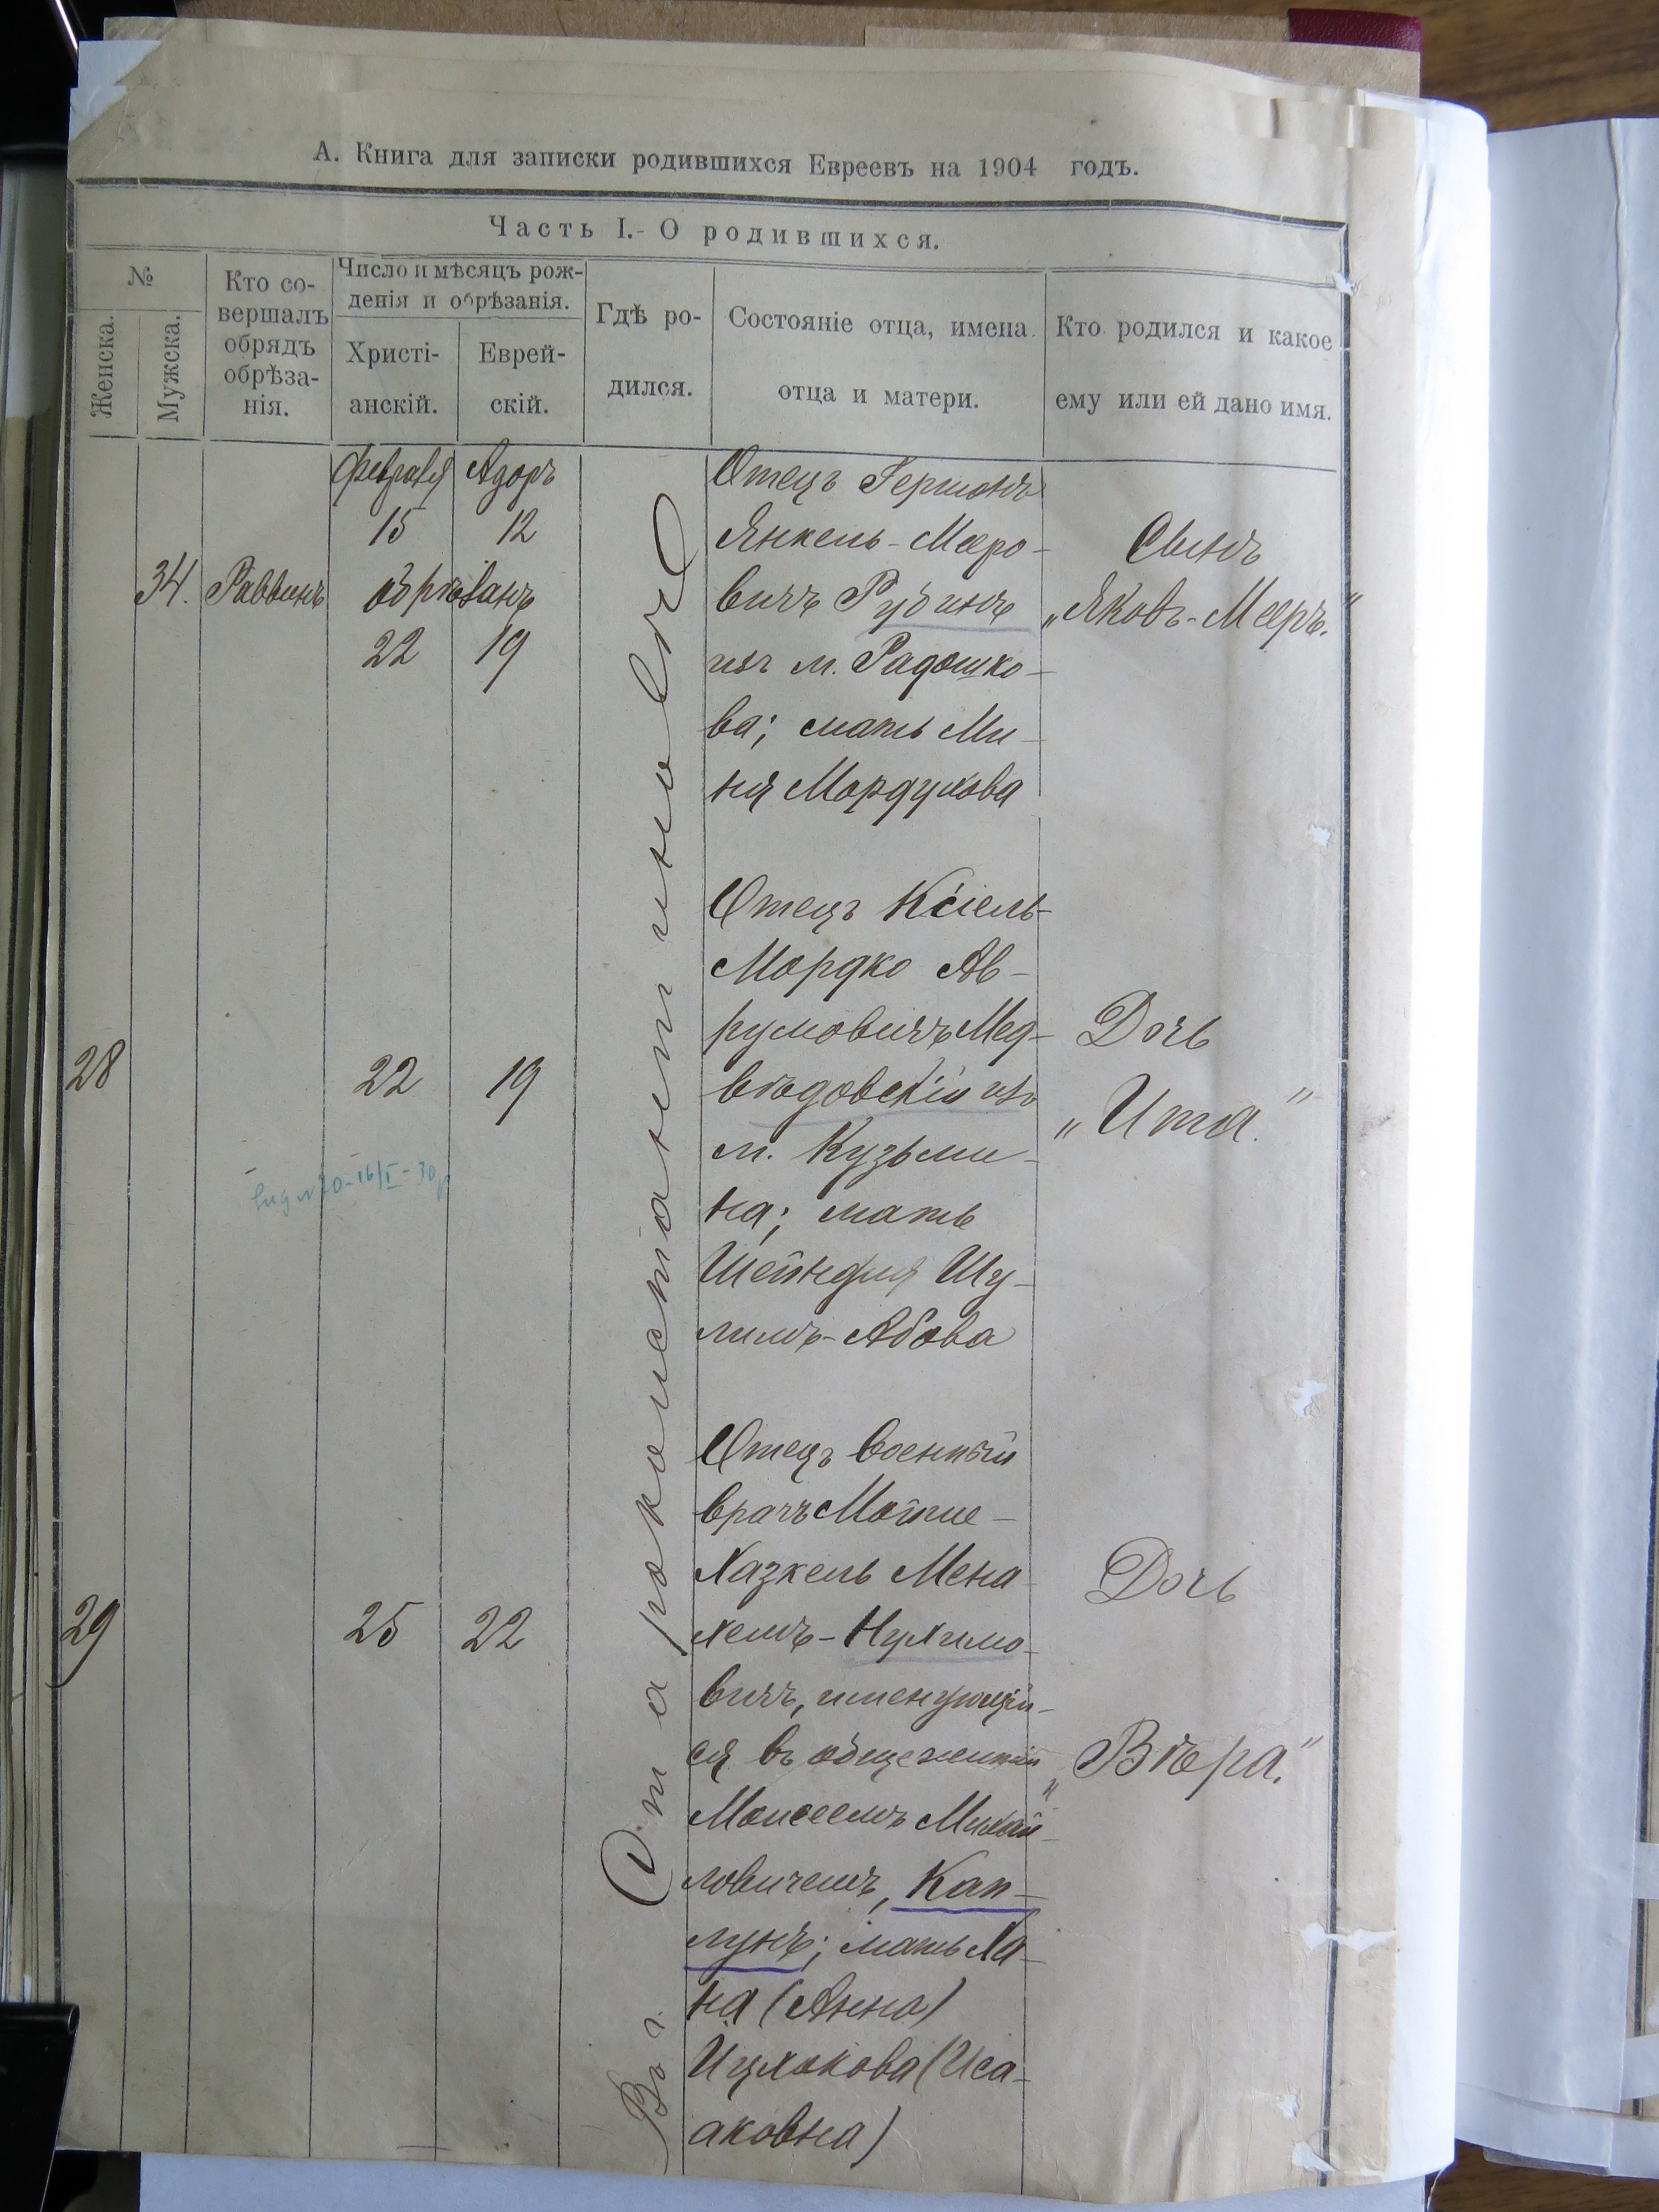 А. Книга для записки родившихся Евреевъ на 1904 годъ.
Часть I.- О родившихся.
№
Женска.
Мужска.
Кто со-
вершалъ
обрядъ
обрѣза-
нія.
Число и мѣсяцъ рож-
денія и обрѣзанія.
Христі-
анскій.
Еврей-
скій.
Гдѣ ро-
дился.
Состояніе отца, имена
отца и матери.
Кто родился и какое
ему или ей дано имя.
Февраля Адоръ
15 12
34. Раввинъ обрѣзанъ
22 19
Отецъ Гершонъ
Янкель-Мееро-
вичъ Рубинъ
изъ м. Радошко-
ва; мать Ми-
ня Мордухова
Сынъ
„Яковъ-Мееръ."
Въ г. Староконстантиновѣ
28
22 19
Отецъ Кісіель-
Мордко Ав-
румовичъ Мед-
вѣдовскій изъ
м. Кузьми-
на; мать
Шейндля Шу-
лимъ-Абова
Дочь
„Ита."
29
25 22
Отецъ военный
врачъ Мойше-
Хазкель Мена-
хемъ-Нухимо-
вичъ, именующій-
ся въ общежитіи
Моисеемъ Михай-
ловичемъ, Кап-
лунъ; мать Ха-
на (Анна)
Ицхокова (Иса-
аковна)
Дочь
„Вѣра."